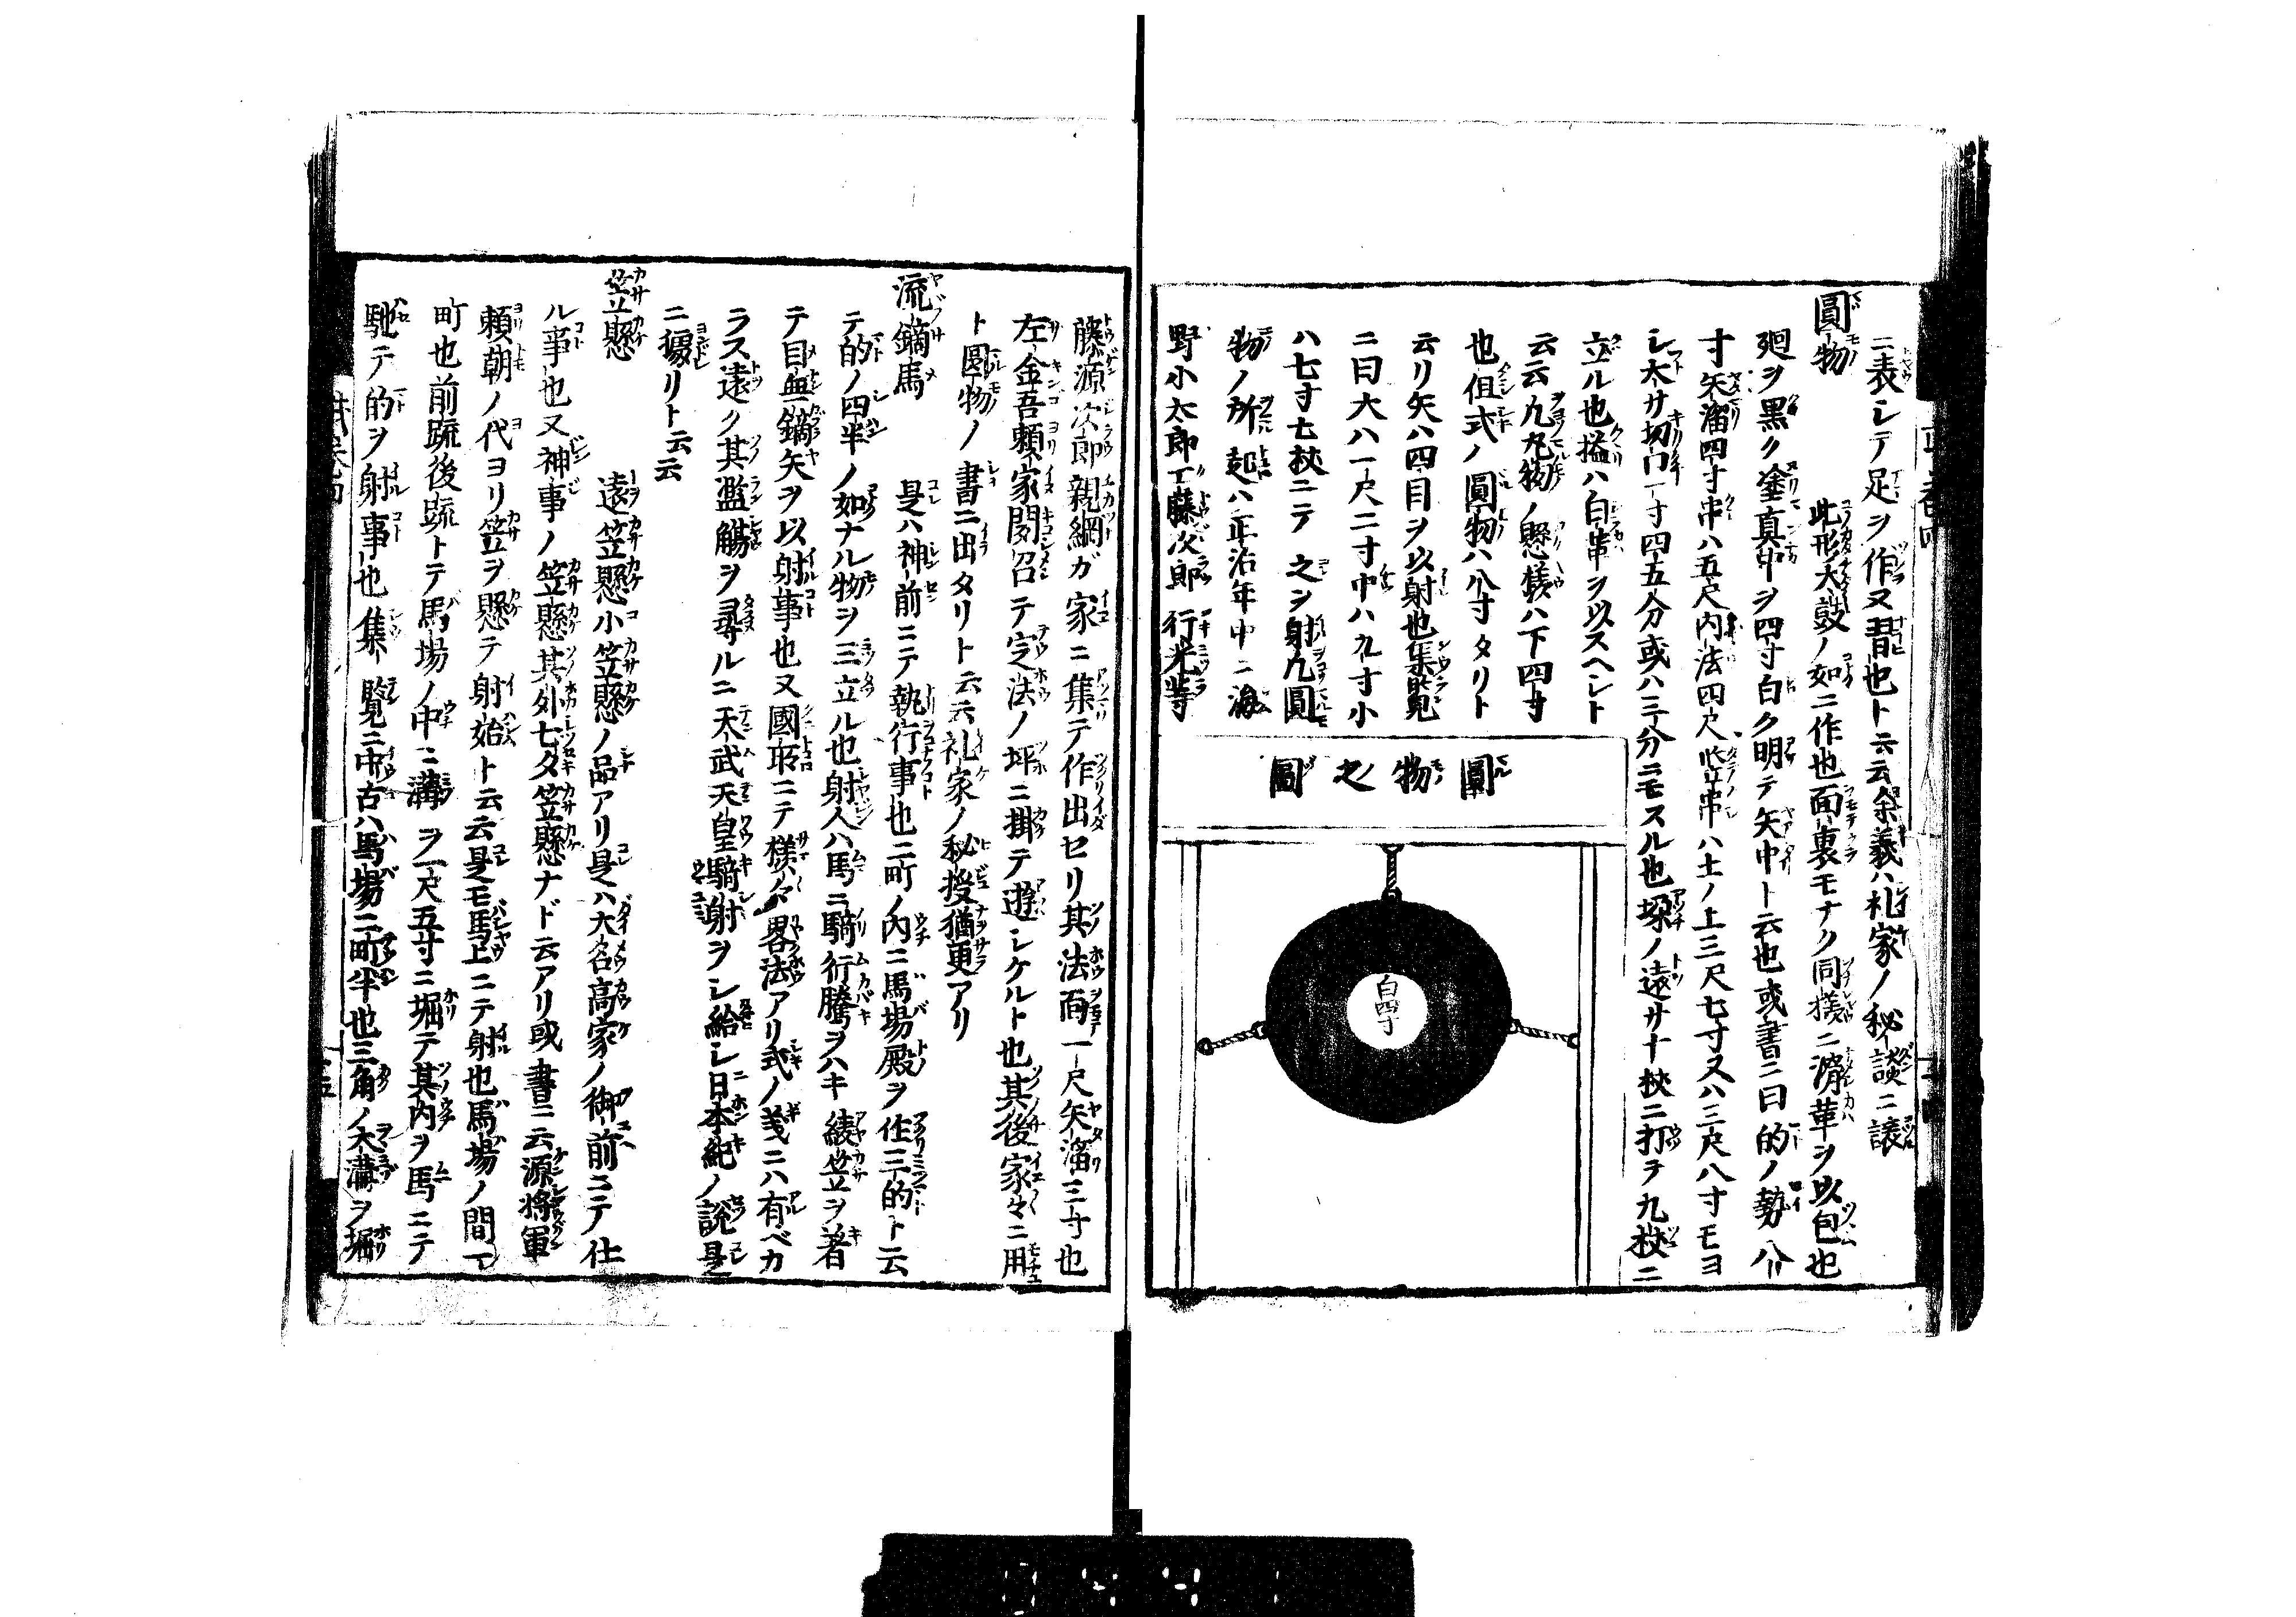 ニ表シテ足ヲ作又習也ト云云余義ハ礼家ノ秘談ニ譲
圓物　此形大鼓ノ如ニ作也面裏モナク同様ニ滑革ヲ以包也
廻ヲ黒ク塗真中ヲ四寸白ク明テ矢中ト云也或書ニ曰的ノ勢八
寸矢溜四寸串ハ五尺内法四尺竪串ハ土ノ上三尺七寸又ハ三尺八寸モヨ
シ太サ切口一寸四五分或ハ三分ニモスル也垜ノ遠サ十杖ニ打ヲ九杖ニ
立ル也搤ハ白革ヲ以スヘシト
云云九丸物ノ懸様ハ下四寸
也但式ノ圓物ハ八寸タリト
云リ矢ハ四目ヲ以射也集覧
ニ曰大八一尺二寸中ハ九寸小
ハ七寸七杖ニテ之ヲ射凡圓
物ノ所起ハ正治年中ニ海
野小太郎工藤次郎行光等
圓物之圖
白四寸
藤源次郎親綱ガ家ニ集テ作出セリ其法面一尺矢溜三寸也
左金吾頼家聞召テ定法ノ坪ニ掛テ遊シケルト也其後家々ニ用
ト圓物ノ書ニ出タリト云云礼家ノ秘授猶更アリ
流鏑馬　是ハ神前ニテ執行事也二町ノ内ニ馬場殿ヲ作三的ト云
テ的ノ四半ノ如ナル物ヲ三立ル也射人ハ馬ニ騎行騰ヲハキ綾笠ヲ著
テ目無鏑矢ヲ以射事也又國所ニテ様々畧法アリ式ノ義ニハ有ベカ
ラス遠ク其濫觴ヲ尋ルニ天武天皇騎射ヲシ給シ日本紀ノ説是
ニ據リト云云
笠懸　遠笠懸小笠懸ノ品アリ是ハ大名高家ノ御前ニテ仕
ル事也又神事ノ笠懸其外七夕笠懸ナド云アリ或書ニ云源將軍
頼朝ノ代ヨリ笠ヲ懸テ射始ト云云是モ馬上ニテ射也馬場ノ間一
町也前疏後疏トテ馬場ノ中ニ溝ヲ一尺五寸ニ堀テ其内ヲ馬ニテ
馳テ的ヲ射事也集覧ニ中古ハ馬場二町半也三角ノ木溝ヲ堀